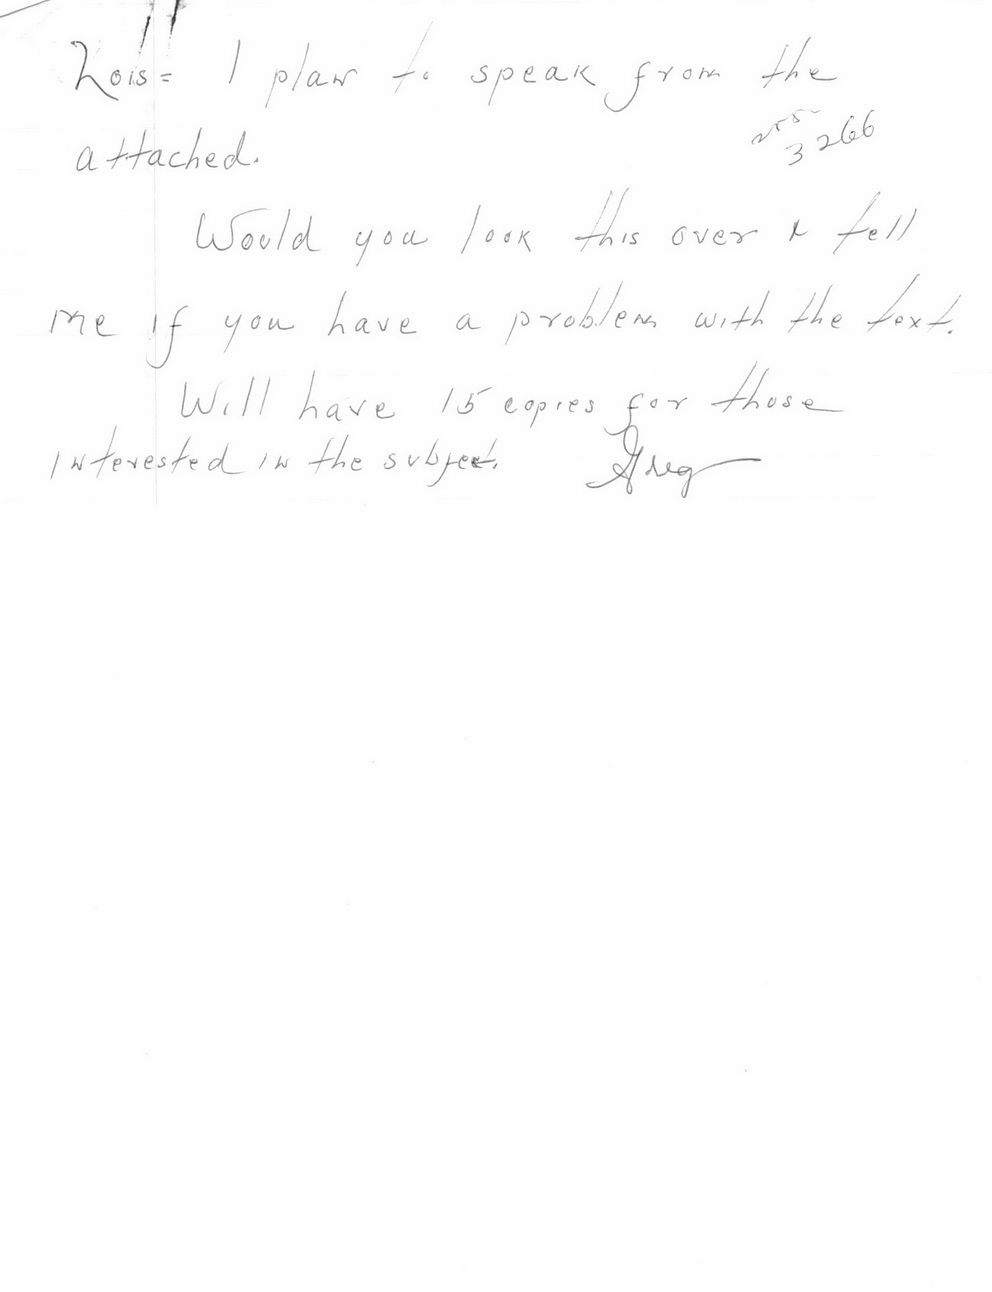 Lois= I plan to speak from the
attached.
3266
Would you look this over & tell
me if you have a problem with the text.
Will have 15 copies for those
interested in the subject. Greg